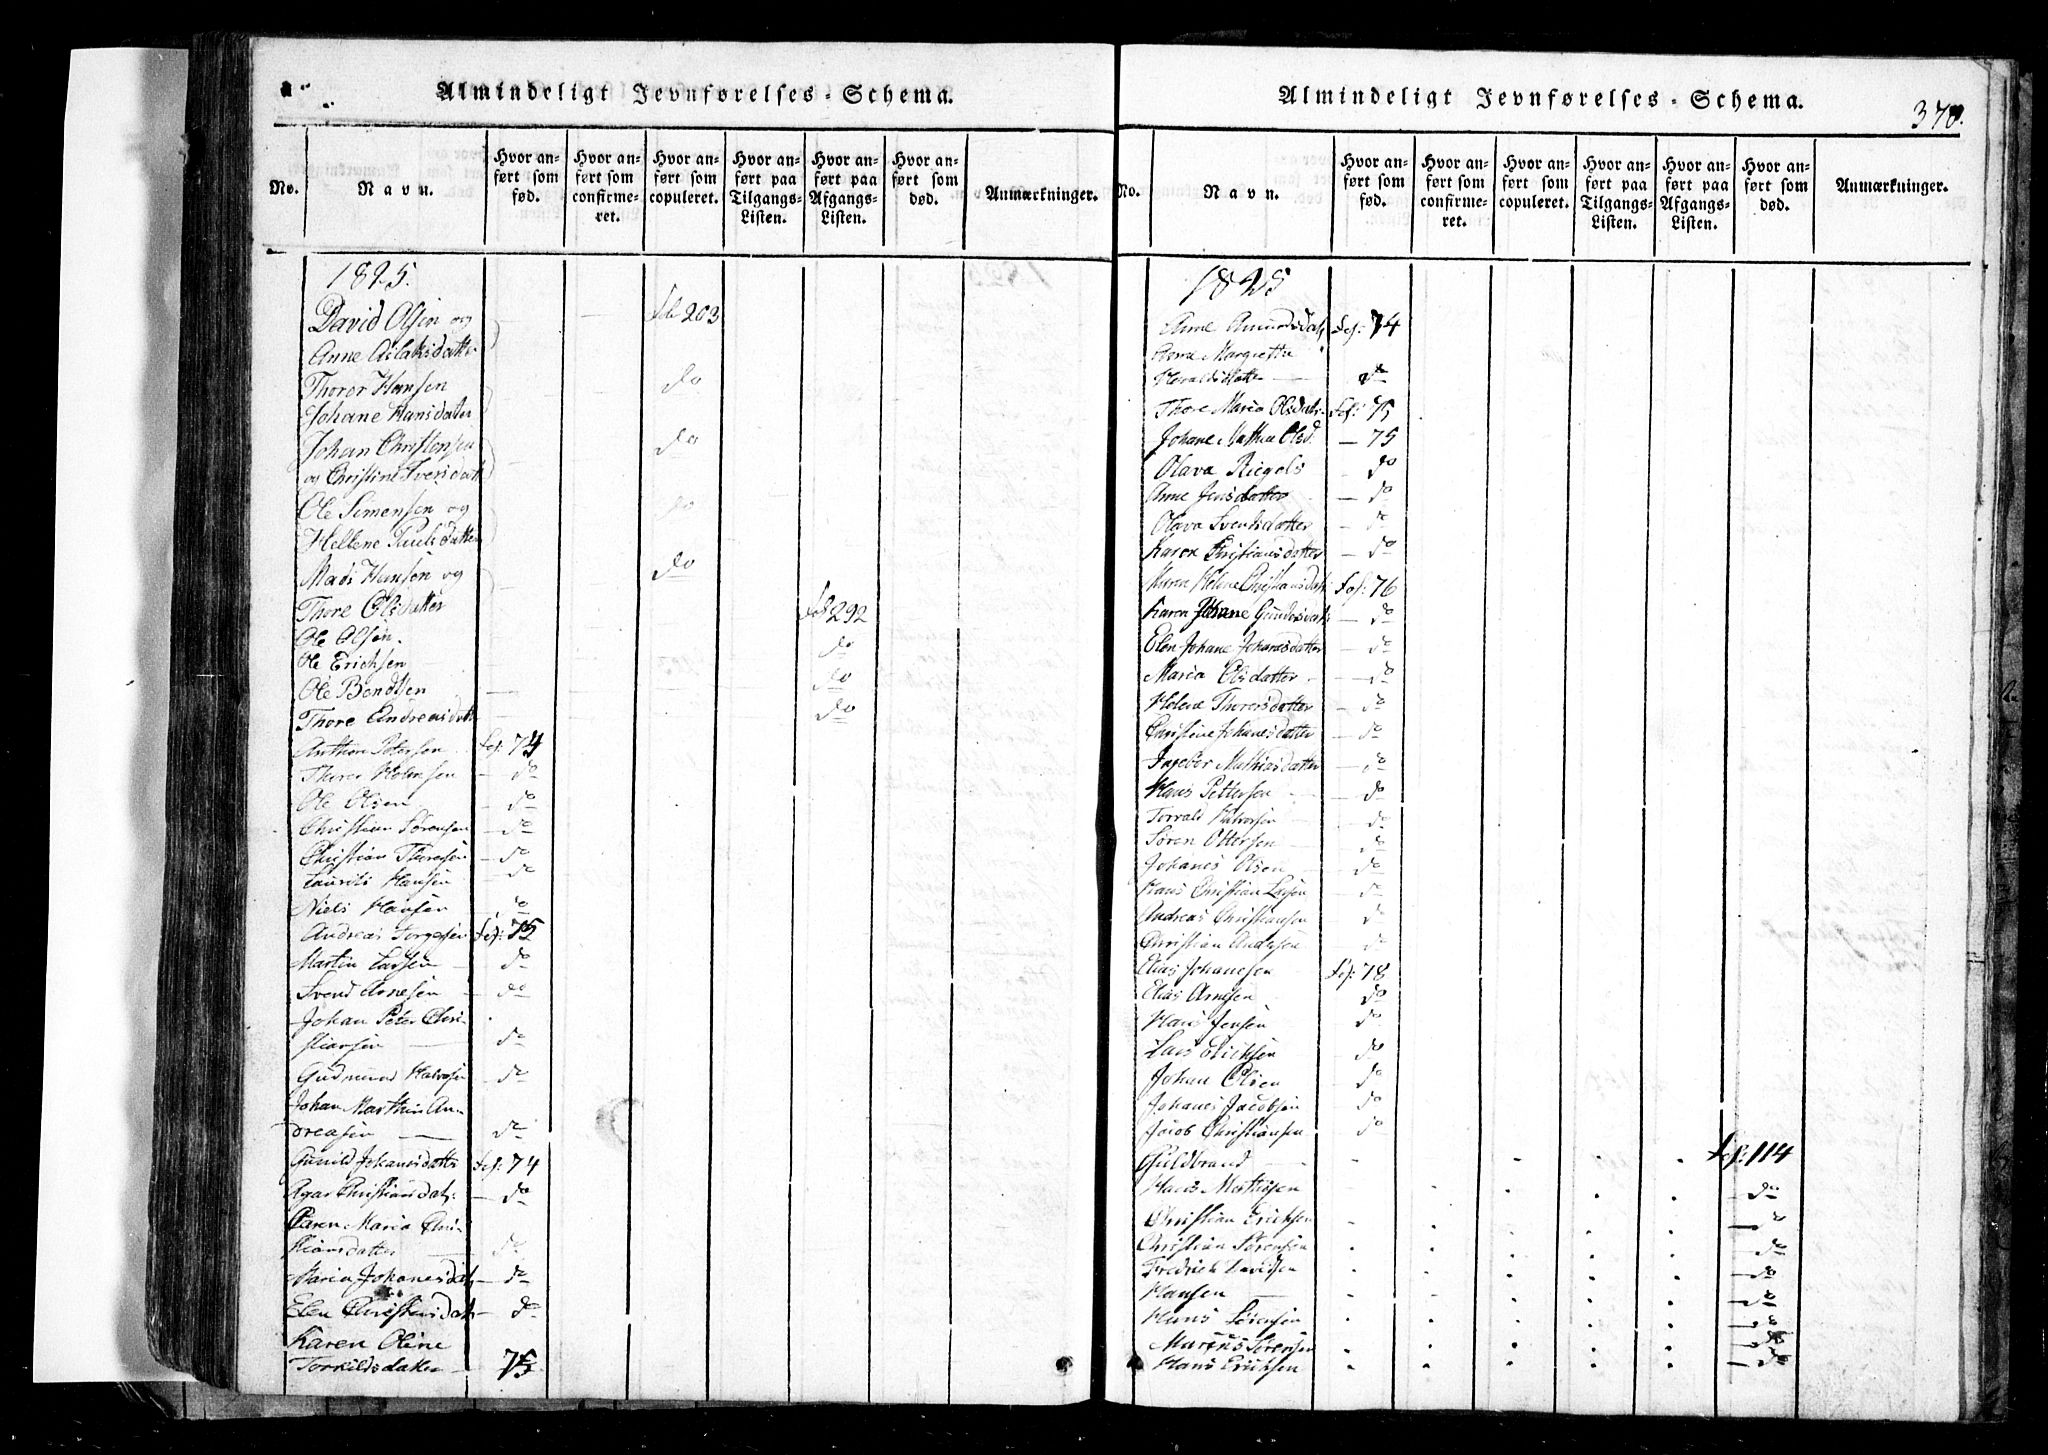 Almindeligt Jevnførelses-Schema.
No.
Navn.
Hvor anført som fød.
Hvor anført som confirmeret.
Hvor anført som copuleret.
Hvor anført paa Tilgangs-Listen.
Hvor anført paa Afgangs-Listen.
Hvor anført som død.
Anmærkninger.
1825.
David Olsen og Fol 203
Anne Aslaksdatter
Thorer Hansen do
Johane Hansdatter
Johan Christensen do
og Christine Iversdatt
Ole Simensen og do
Hellene Poulsdatter
Mads Hansen og do
Thore Olsdatter Fol 292
Ole Olsen. do
Ole Erichsen do
Ole Bendtsen do
Thore Andreasdatt
Anthon Petersen Fol: 74
Thorer Holmsen — do
Ole Olsen — do
Christian Sørensen — do
Christian Thoresen — do
Laurits Hansen do
Niels Hansen do
Andreas Torgersen Fol: 75
Martin Larsen — do
Svend Arnesen — do
Johan Peter Chri-
stiansen — do
Gudmund Halvorsen — do
Johan Marthin An-
dreasen — do
Gunild Johansdatter Fol: 74
Agar Christiansdatr: — do
Karen Maria Chri-
stiansdatter — do
Maria Johanesdatr — do
Elen Christensdatr — do
Karen Oline
Torkildsdatter — 75
Almindeligt Jevnførelses-Schema.
370.
No.
Navn.
Hvor anført som fød.
Hvor anført som confirmeret.
Hvor anført som copuleret.
Hvor anført paa Tilgangs-Listen.
Hvor anført paa Afgangs-Listen.
Hvor anført som død.
Anmærkninger.
1825
Anne Amundsdatr Fol: 74
Anne Margrethe
Haraldsdatter — do
Thore Maria Olsdatr. Fol: 75
Johane Mathea Olsd. — 75
Olava Riegels — do
Anne Jensdatter — do
Olava Svendsdatter — do
Karen Christiansdatter — do
Maren Helene Christiansdatr Fol: 76
Karen Johane Gundersdatr: — do
Elen Johane Johanesdatter — do
Maria Olsdatter — do
Helene Thoresdatter — do
Christine Johanesdatter — do
Ingebor Mathiasdatter — do
Hans Pettersen — do
Torvald Halvorsen — do
Søren Ottersen do
Johanes Olsen — do
Hans Christian Larsen — do
Andreas Christiansen do
Christian Andersen do
Elias Johanesen Fol: 78
Elias Arnesen do
Hans Jensen do
Lars Erichsen do
Johan Olsen do
Johanes Jacobsen do
Jacob Christiansen do
Guldbrand — Fol: 114
Hans Mathisen — do
Christian Erichsen — do
Christian Sørensen — do
Fredrich Davidsen — do
Hansen — do
Hans Sørensen — do
Marius Sørensen — do
Hans Erichsen — do